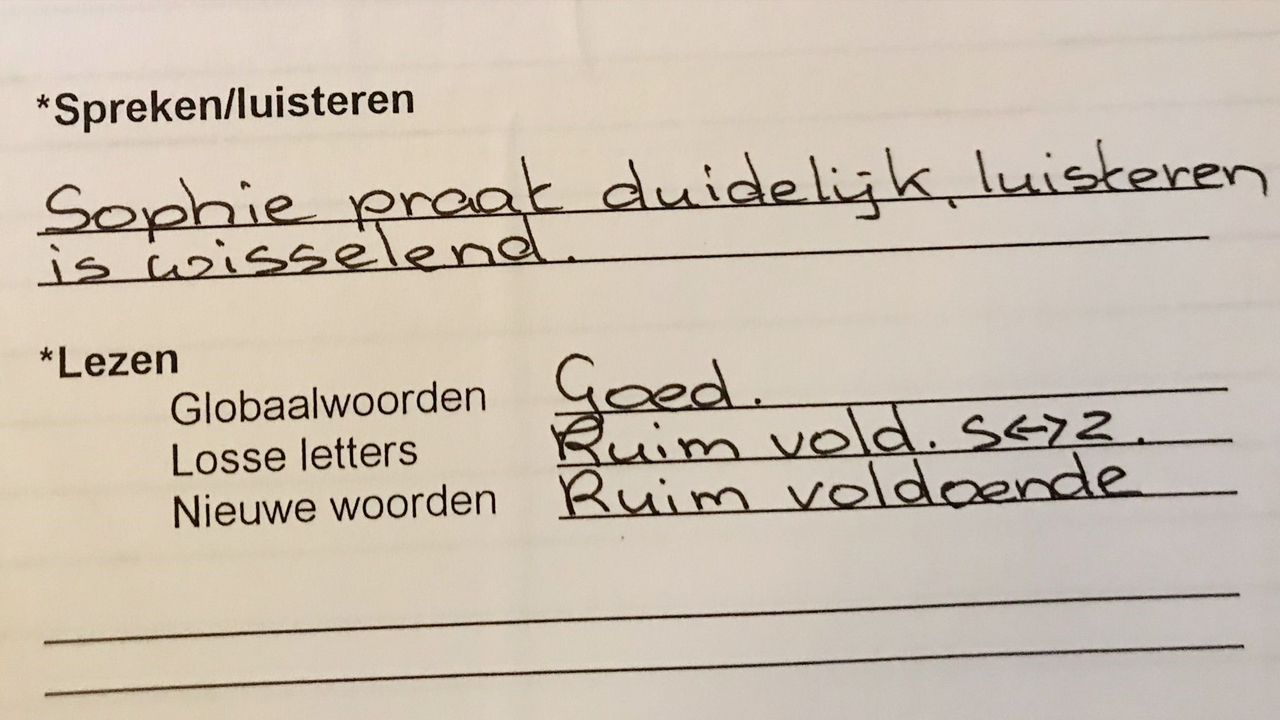 *Spreken/luisteren
Sophie praat duidelijk, luisteren
is wisselend.
*Lezen
Globaalwoorden Goed.
Losse letters Ruim vold. s<->z.
Nieuwe woorden Ruim voldoende